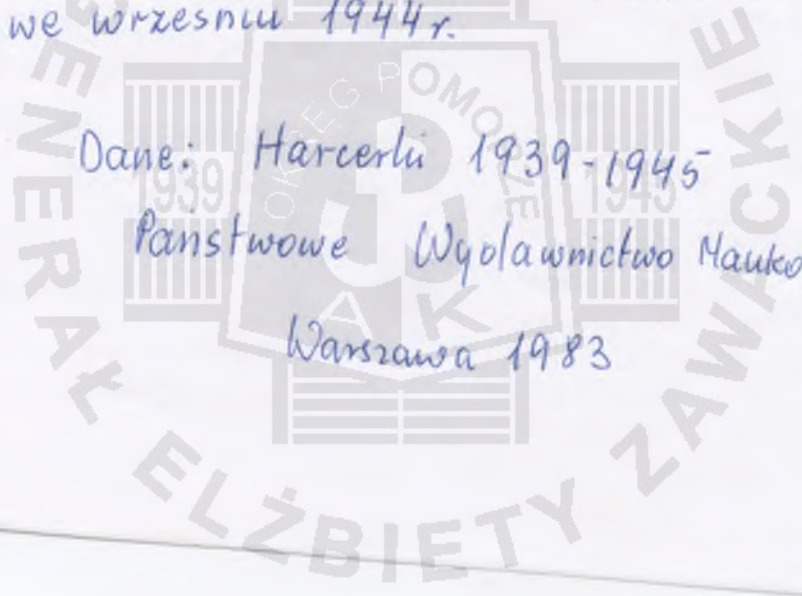 we wrześniu 1944r.
Dane: Harcerki 1939-1945
Państwowe Wydawnictwo Nauko
Warszawa 1983
GENERAŁ ELŻBIETY ZAWACKIE
OKRĘG POMORZE
1939 1945
AK